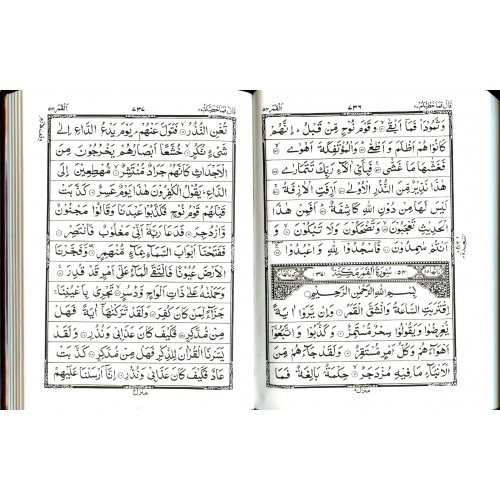 قَالَ فَمَا خَطْبُكُمْ ٢٧ ٧٣٦ اَلْقَمَر ٥٤
وَثَمُوْدَا۟ فَمَاۤ اَبْقٰى ۙ وَقَوْمَ نُوْحٍ مِّنْ قَبْلُ ؕ اِنَّهُمْ
كَانُوْا هُمْ اَظْلَمَ وَاَطْغٰى ؕ وَالْمُؤْتَفِكَةَ اَهْوٰى ۙ
فَغَشّٰهَا مَا غَشّٰى ۚ فَبِاَيِّ اٰلَآءِ رَبِّكَ تَتَمَارٰى
هٰذَا نَذِيْرٌ مِّنَ النُّذُرِ الْاُوْلٰى اَزِفَتِ الْاٰزِفَةُ ۚ
لَيْسَ لَهَا مِنْ دُوْنِ اللّٰهِ كَاشِفَةٌ ؕ اَفَمِنْ هٰذَا
الْحَدِيْثِ تَعْجَبُوْنَ ۙ وَتَضْحَكُوْنَ وَلَا تَبْكُوْنَ ۙ وَ
اَنْتُمْ سٰمِدُوْنَ فَاسْجُدُوْا لِلّٰهِ وَاعْبُدُوْا
(٥٤) سُوْرَةُ الْقَمَرِ مَكِّيَّةٌ (٣٧)
بِسْمِ اللّٰهِ الرَّحْمٰنِ الرَّحِيْمِ
اِقْتَرَبَتِ السَّاعَةُ وَانْشَقَّ الْقَمَرُ وَاِنْ يَّرَوْا اٰيَةً
يُّعْرِضُوْا وَيَقُوْلُوْا سِحْرٌ مُّسْتَمِرٌّ وَكَذَّبُوْا وَاتَّبَعُوْۤا
اَهْوَآءَهُمْ وَكُلُّ اَمْرٍ مُّسْتَقِرٌّ وَلَقَدْ جَآءَهُمْ مِّنَ
الْاَنْۢبَآءِ مَا فِيْهِ مُزْدَجَرٌ ۙ حِكْمَةٌۢ بَالِغَةٌ فَمَا
منزل ٧
قَالَ فَمَا خَطْبُكُمْ ٢٧ ٧٣٧ اَلْقَمَر ٥٤
تُغْنِ النُّذُرُ ۙ فَتَوَلَّ عَنْهُمْ ۘ يَوْمَ يَدْعُ الدَّاعِ اِلٰى
شَيْءٍ نُّكُرٍ ۙ خُشَّعًا اَبْصَارُهُمْ يَخْرُجُوْنَ مِنَ
الْاَجْدَاثِ كَاَنَّهُمْ جَرَادٌ مُّنْتَشِرٌ ۙ مُّهْطِعِيْنَ اِلَى
الدَّاعِ ؕ يَقُوْلُ الْكٰفِرُوْنَ هٰذَا يَوْمٌ عَسِرٌ كَذَّبَتْ
قَبْلَهُمْ قَوْمُ نُوْحٍ فَكَذَّبُوْا عَبْدَنَا وَقَالُوْا مَجْنُوْنٌ
وَّازْدُجِرَ فَدَعَا رَبَّهٗۤ اَنِّيْ مَغْلُوْبٌ فَانْتَصِرْ
فَفَتَحْنَاۤ اَبْوَابَ السَّمَآءِ بِمَآءٍ مُّنْهَمِرٍ ۖ وَّفَجَّرْنَا
الْاَرْضَ عُيُوْنًا فَالْتَقَى الْمَآءُ عَلٰۤى اَمْرٍ قَدْ قُدِرَ ۚ
وَحَمَلْنٰهُ عَلٰى ذَاتِ اَلْوَاحٍ وَّدُسُرٍ ۙ تَجْرِيْ بِاَعْيُنِنَا ۚ
جَزَآءً لِّمَنْ كَانَ كُفِرَ وَلَقَدْ تَّرَكْنٰهَاۤ اٰيَةً فَهَلْ
مِنْ مُّدَّكِرٍ فَكَيْفَ كَانَ عَذَابِيْ وَنُذُرِ وَلَقَدْ
يَسَّرْنَا الْقُرْاٰنَ لِلذِّكْرِ فَهَلْ مِنْ مُّدَّكِرٍ كَذَّبَتْ
عَادٌ فَكَيْفَ كَانَ عَذَابِيْ وَنُذُرِ اِنَّاۤ اَرْسَلْنَا عَلَيْهِمْ
منزل ٧